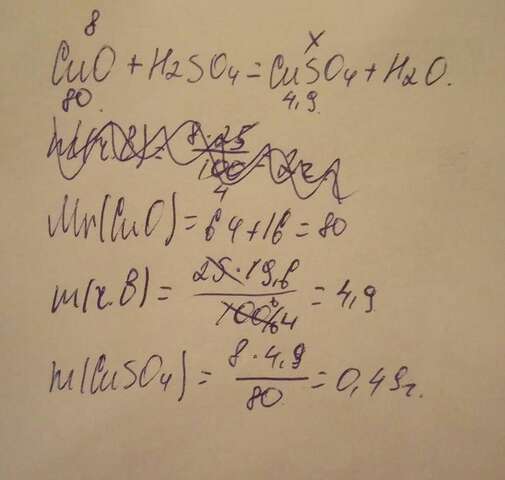 8 x
CuO + H2SO4 = CuSO4 + H2O.
80. 4,9
Mr(CuO) = 64 + 16 = 80
m(г.В) = 25·19,6 / 100% 4 = 4,9
m(CuSO4) = 8·4,9 / 80 = 0,49г.